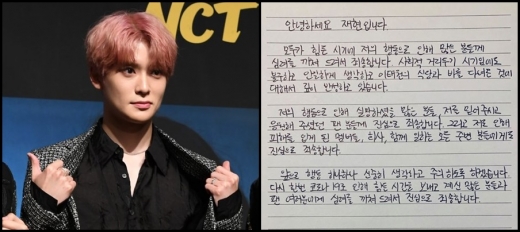 NCT
안녕하세요 재현입니다.
모두가 힘든 시기에 저의 행동으로 인해 많은 분들께
심려를 끼쳐 드려서 죄송합니다. 사회적 거리두기 시기임에도
불구하고 안일하게 생각하고 이태원의 식당과 바를 다녀온 것에
대해서 깊이 반성하고 있습니다.
저의 행동으로 인해 실망하셨을 많은 분들, 저를 믿어주시고
응원해 주셨던 팬 분들께 진심으로 죄송합니다. 그리고 저로 인해
피해를 입게 된 멤버들, 회사, 함께 일하는 모든 주변 분들에게도
진심으로 죄송합니다.
앞으로 행동 하나하나 신중히 생각하고 주의하도록 하겠습니다.
다시 한번 코로나 19로 인해 힘든 시간을 보내고 계신 많은 분들과
팬 여러분에게 심려를 끼쳐 드려서 진심으로 죄송합니다.